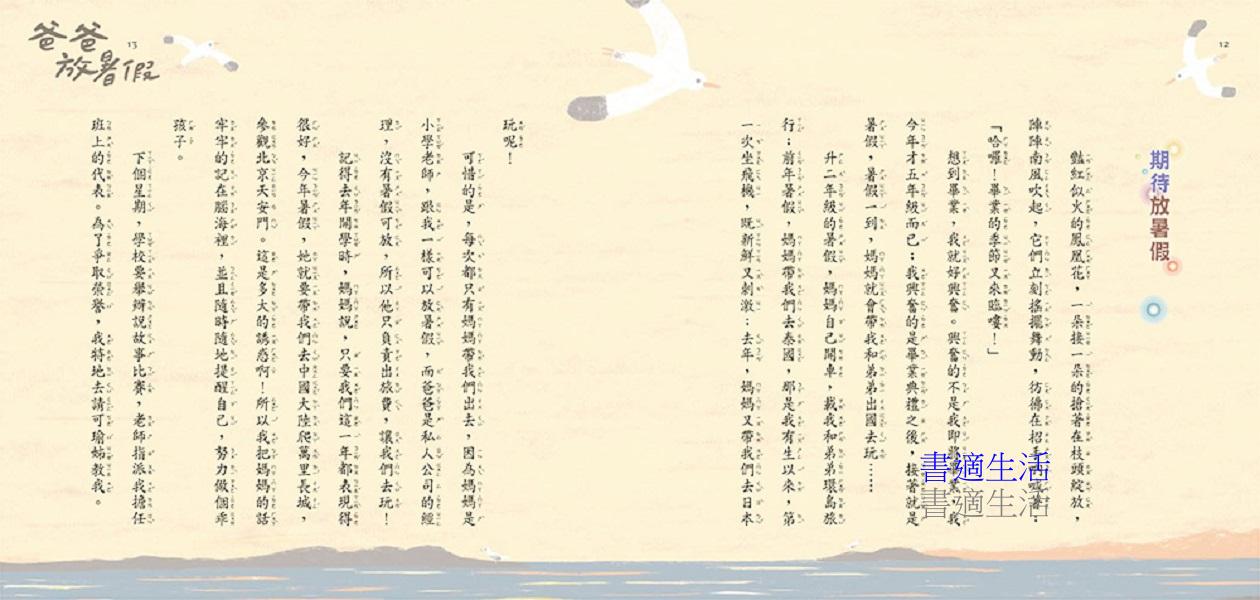 12
期待放暑假
豔紅似火的鳳凰花，一朵接一朵的搶著在枝頭綻放，
陣陣南風吹起，它們立刻搖擺舞動，彷彿在招手喊著：
「哈囉！畢業的季節又來臨嘍！」
想到畢業，我就好興奮。興奮的不是我即將畢業，我
今年才五年級而已；我興奮的是畢業典禮之後，接著就是
暑假，暑假一到，媽媽就會帶我和弟弟出國去玩……
升二年級的暑假，媽媽自己開車，載我和弟弟環島旅
行；前年暑假，媽媽帶我們去泰國，那是我有生以來，第
一次坐飛機，既新鮮又刺激；去年，媽媽又帶我們去日本
玩呢！
可惜的是，每次都只有媽媽帶我們出去，因為媽媽是
小學老師，跟我一樣可以放暑假，而爸爸是私人公司的經
理，沒有暑假可放，所以他只負責出旅費，讓我們去玩！
記得去年開學時，媽媽說，只要我們這一年都表現得
很好，今年暑假，她就要帶我們去中國大陸爬萬里長城，
參觀北京天安門。這是多大的誘惑啊！所以我把媽媽的話
牢牢的記在腦海裡，並且隨時隨地提醒自己，努力做個乖
孩子。
下個星期，學校要舉辦說故事比賽，老師指派我擔任
班上的代表。為了爭取榮譽，我特地去請可瑜姊教我。
13
爸爸
放暑假
書適生活
書適生活